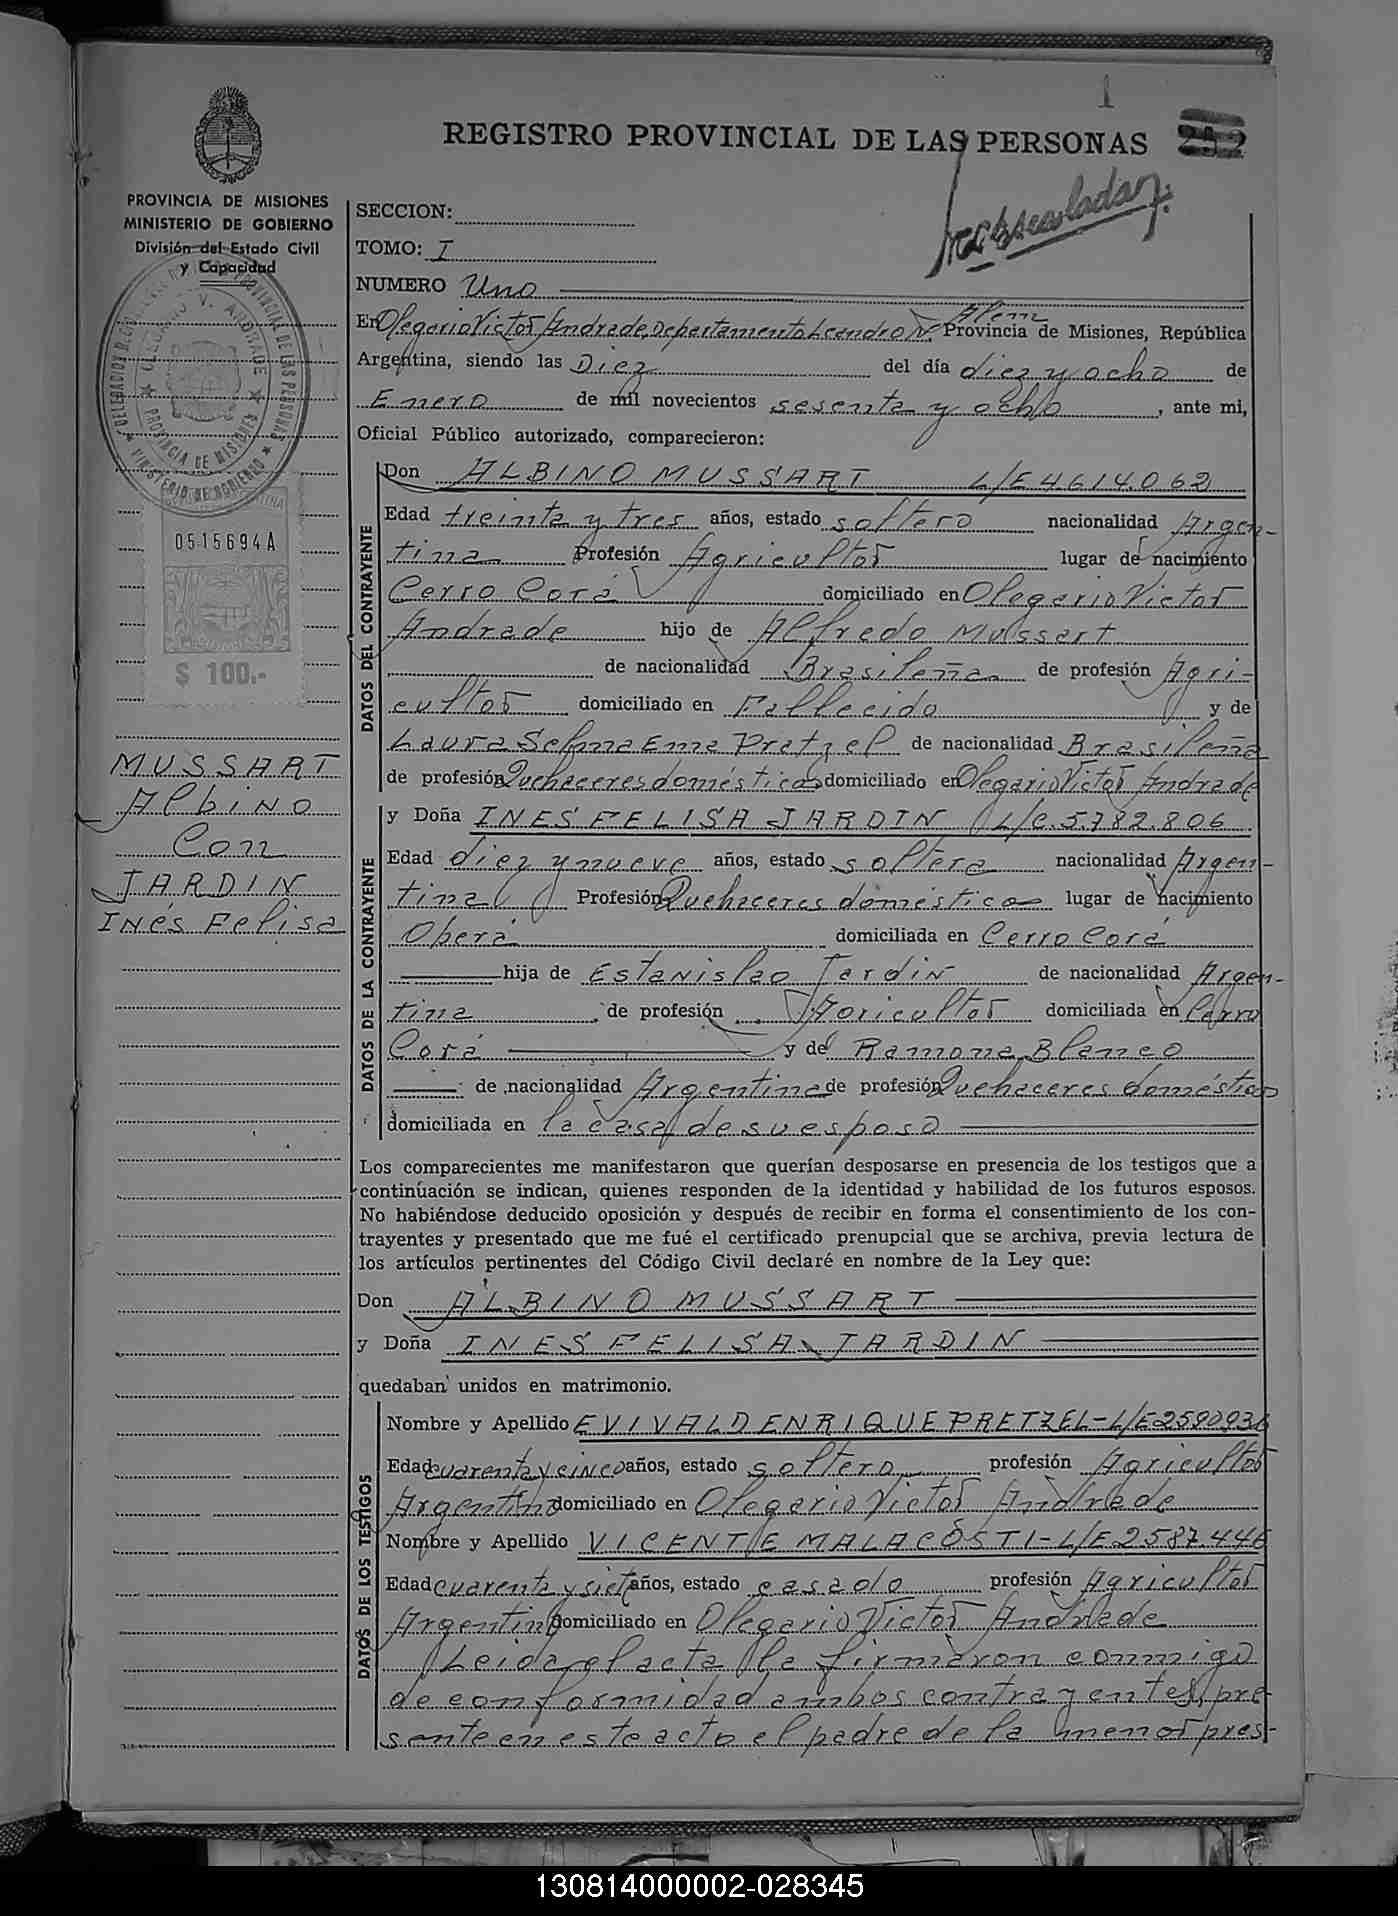 1
REGISTRO PROVINCIAL DE LAS PERSONAS 252
PROVINCIA DE MISIONES
MINISTERIO DE GOBIERNO
División del Estado Civil
y Capacidad
0515694A
$ 100.-
MUSSART
Albino
Con
JARDIN
Inés Felisa
SECCION:
TOMO: I
NUMERO Uno
Alem
En Olegario Victor Andrade, Departamento Leandro N. Provincia de Misiones, República
Argentina, siendo las Diez del día diez y ocho de
Enero de mil novecientos sesenta y ocho, ante mi,
Oficial Público autorizado, comparecieron:
DATOS DEL CONTRAYENTE
Don ALBINO MUSSART L/E 4.614.062
Edad treinta y tres años, estado soltero nacionalidad Argen-
tina Profesión Agricultor lugar de nacimiento
Cerro Corá domiciliado en Olegario Victor
Andrade hijo de Alfredo Mussart
de nacionalidad Brasileña de profesión Agri-
cultor domiciliado en Fallecido y de
Laura Selma Ema Pretzel de nacionalidad Brasileña
de profesión Quehaceres domésticos domiciliado en Olegario Victor Andrade
DATOS DE LA CONTRAYENTE
y Doña INES FELISA JARDIN L/C.5.782.806
Edad diez y nueve años, estado soltera nacionalidad Argen-
tina Profesión Quehaceres domésticos lugar de nacimiento
Oberá domiciliada en Cerro Corá
hija de Estanislao Jardin de nacionalidad Argen-
tina de profesión Agricultor domiciliada en Cerro
Corá y de Ramona Blanco
de nacionalidad Argentina de profesión Quehaceres domésticos
domiciliada en la casa de su esposo
Los comparecientes me manifestaron que querían desposarse en presencia de los testigos que a
continuación se indican, quienes responden de la identidad y habilidad de los futuros esposos.
No habiéndose deducido oposición y después de recibir en forma el consentimiento de los con-
trayentes y presentado que me fué el certificado prenupcial que se archiva, previa lectura de
los artículos pertinentes del Código Civil declaré en nombre de la Ley que:
Don ALBINO MUSSART
y Doña INES FELISA JARDIN
quedaban unidos en matrimonio.
DATOS DE LOS TESTIGOS
Nombre y Apellido EVIVALD ENRIQUE PRETZEL-L/E 2590936
Edad cuarenta y cinco años, estado soltero profesión Agricultor
Argentino domiciliado en Olegario Victor Andrade
Nombre y Apellido VICENTE MALACOSTI-L/E.2587.446
Edad cuarenta y siete años, estado casado profesión Agricultor
Argentino domiciliado en Olegario Victor Andrade
Leida el acta la firmaron conmigo
de conformidad ambos contrayentes, pre-
sente en este acto el padre de la menor pres-
130814000002-028345